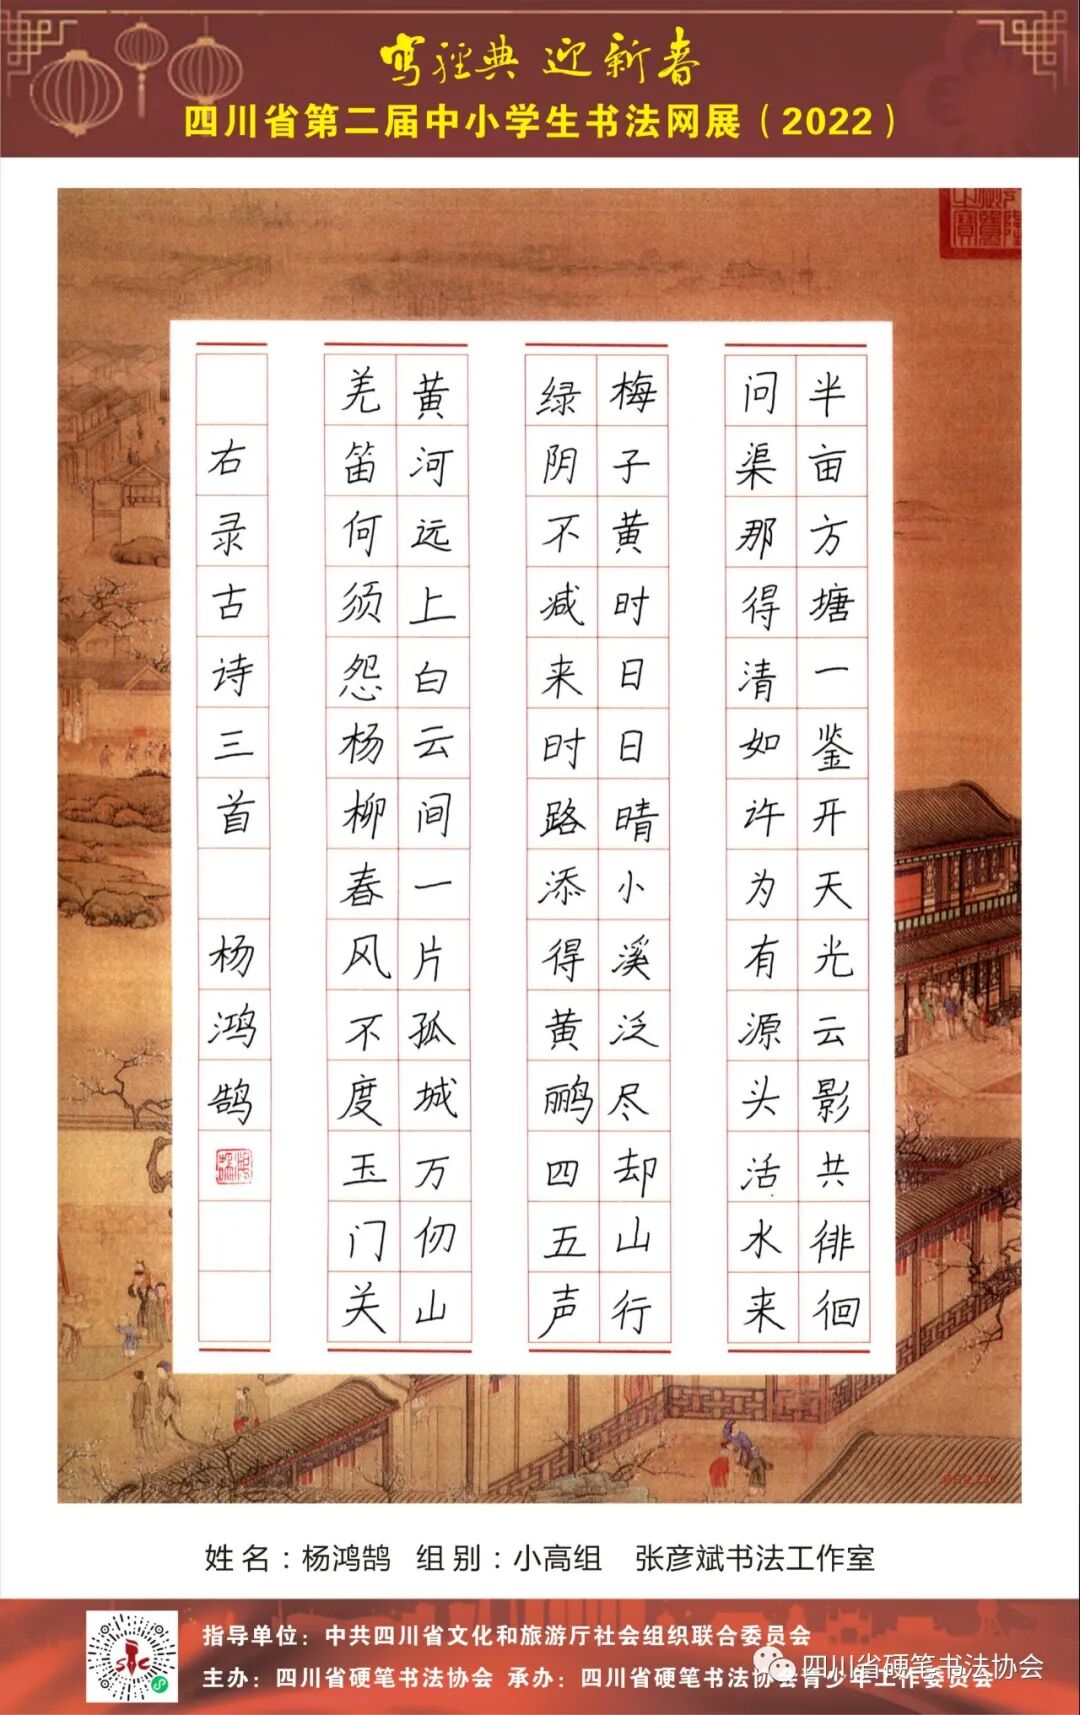 写经典 迎新春
四川省第二届中小学生书法网展（2022）
半亩方塘一鉴开天光云影共徘徊
问渠那得清如许为有源头活水来
梅子黄时日日晴小溪泛尽却山行
绿阴不减来时路添得黄鹂四五声
黄河远上白云间一片孤城万仞山
羌笛何须怨杨柳春风不度玉门关
右录古诗三首 杨鸿鹄
姓名：杨鸿鹄 组别：小高组 张彦斌书法工作室
指导单位：中共四川省文化和旅游厅社会组织联合委员会
主办：四川省硬笔书法协会 承办：四川省硬笔书法协会青少年工作委员会
四川省硬笔书法协会